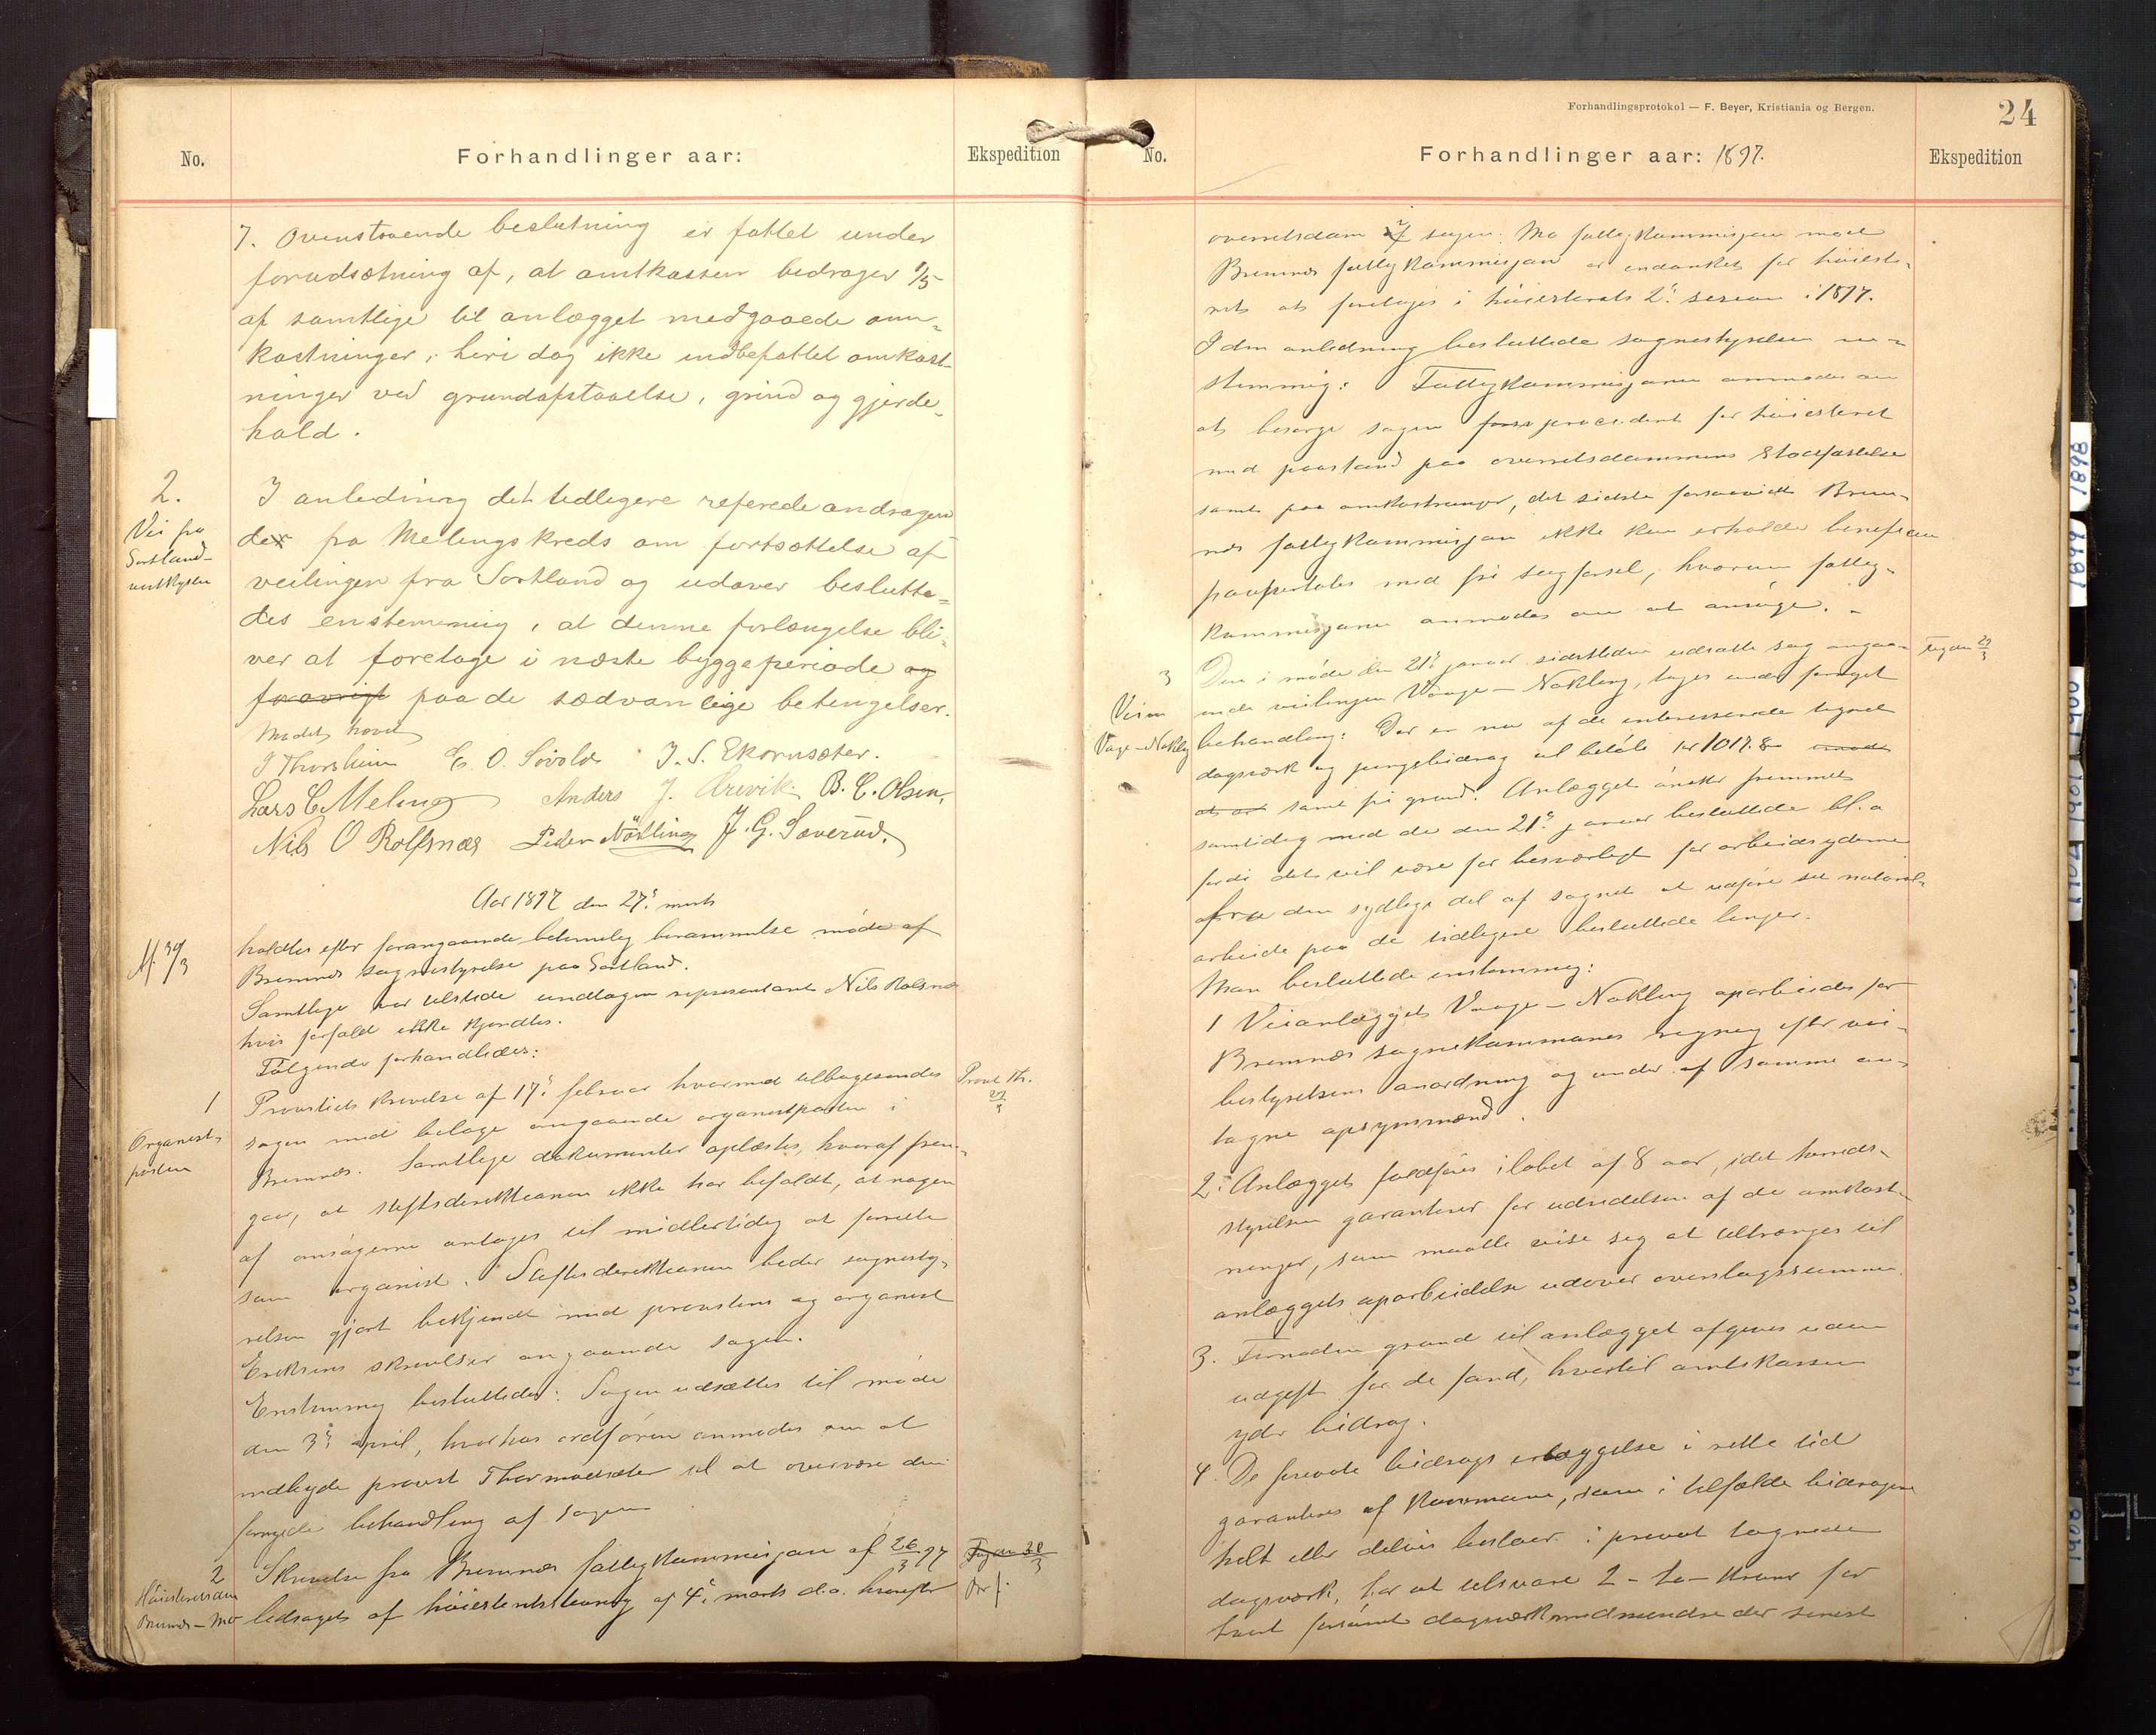 No.
Forhandlinger aar:
Ekspedition
7. Ovenstaaende beslutning er fattet under
forudsætning af, at amtkassen bedrager 1/5
af samtlige til anlægget medgaaede om-
kostninger, heri dog ikke indbefattet omkost-
ninger ved grundafstaaelse, grind og gjerde-
hold.
2.
Vei fra
Sortland-
vestkysten
I anledning det tidligere referede andragen
der fra Melings kreds om fortsættelse af
veilingen fra Sortland og udover beslutte-
des enstemmig, at denne forlængelse bli-
ver at foretage i næste byggeperiode og
forøvrigt paa de sædvanlige betingelser.
Mødet hævet
J Thorsheim E. O. Sivold J. S. Ekornsæter.
Lars C Meling Anders J. Urevik. B. C. Olsen,
Nils O Rolfsnæs Peder Nökling J. G. Sæverud.
Aar 1897 den 27. marts
Af. 30/3
holdtes efter forangaaende betimelig berammelse møde af
Bremnes sognestyrelse paa Sortland.
Samtlige var tilstede undtagen representant Nils Rolsnæs
hvis forfald ikke kjendtes.
Følgende forhandledes:
1
Organist-
posten
Provstiets skrivelse af 17. februar hvormed tilbagesendes
sagen med bilage angaaende organistposten i
Bremnes. Samtlige dokumenter oplæstes, hvoraf frem-
gaar, at stiftsdirektionen ikke har befaldt, at nogen
af ansøgerne antages til midlertidig at forrette
som organist. Stiftsdirektionen beder sognesty-
relsen gjort bekjendt med provstens og organist
Eriksens skrivelser angaaende sagen.
Enstemmig besluttedes: Sagen udsættes til møde
den 3. april, hvorhos ordføreren anmodes om at
indbyde provst Thormodsæter til at overvære den
fornyede behandling af sagen
Provst Th.
27/3
2
Høiesteretsdom
Bremnes-Mo
Skrivelse fra Bremnes fattigkommisjon af 26/3 97
ledsaget af høiesteretstævning af 4. marts d.a. hvorefter
Tegen 30/3
Orf.
Forhandlingsprotokol — F. Beyer, Kristiania og Bergen.
24
No.
Forhandlinger aar: 1897.
Ekspedition
overretsdom i sagen: Mo fattigkommisjon mod
Bremnes fattigkommisjon er indanket for høieste-
ret at foretages i høiesterets 2. sesion i 1897.
I den anledning besluttede sognestyrelsen en-
stemmig: Fattigkommisjonen anmodes om
at besørge sagen procederet for høiesteret
med paastand paa overretsdommens stadfæstelse
samt paa omkostninger, det sidste forsaavidt Brem-
nes fattigkommisjon ikke kan erholde beneficium
paupertatis med fri sagførsel, hvorom fattig-
kommisjonen anmodes om at ansøge. -
3
Veien
Vage-Nøkling
Den i møde den 21. januar sidstleden udsatte sag angaa-
ende veilingen Vaage - Nøkling, tages under fornyet
behandling: Der er nu af de interesserede tegnet
dagsværk og pengebidrag til beløb kr 1017.8 mod
at at samt fri grund. Anlægget ønskes fremmet
samtidig med de den 21. januar besluttede bl.a
fordi det vil være for besværligt for arbeidsyderne
fra den sydlige del af sognet at udføre sit natural-
arbeide paa de tidligere besluttede linjer.
Man besluttede enstemmig:
1 Veianlægget Vaage - Nøkling oparbeides for
Bremnes sognekommunes regning efter vei-
bestyrelsens anordning og under af samme an-
tagne opsynsmænd.
2. Anlægget fuldføres i løbet af 8 aar, idet herreds-
styrelsen garanterer for udredelsen af de omkost-
ninger, som maatte vise seg at tiltrænges til
anlæggets oparbeidelse udover overslagssummen.
3. Fornøden grund til anlægget afgives uden
udgift for de fond, hvortil amtskassen
yder bidrag.
4. De private bidrags erlæggelse i rette tid
garanteres af kommunen, som i tilfælde bidragene
helt eller delvis bestaar i privat tegnede
dagsværk, har at tilsvare 2 - to - kroner for
hvert forsømt dagsværk medmindre der senest
Tegen 29/3
1898
1899
1900
1901
1902
1908